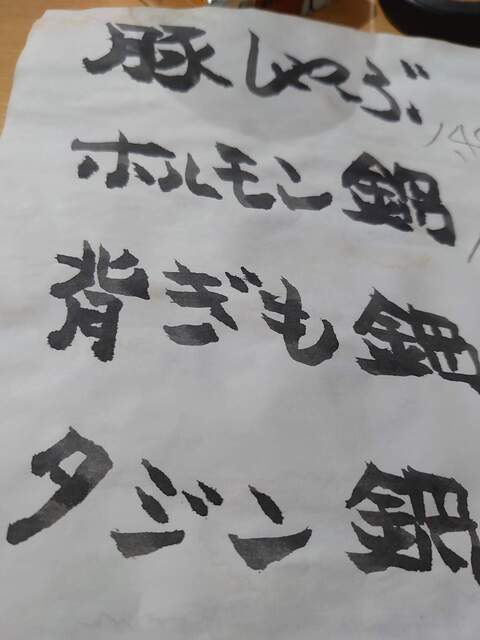 豚しゃぶ
ホルモン鍋
背ぎも鍋
タジン鍋